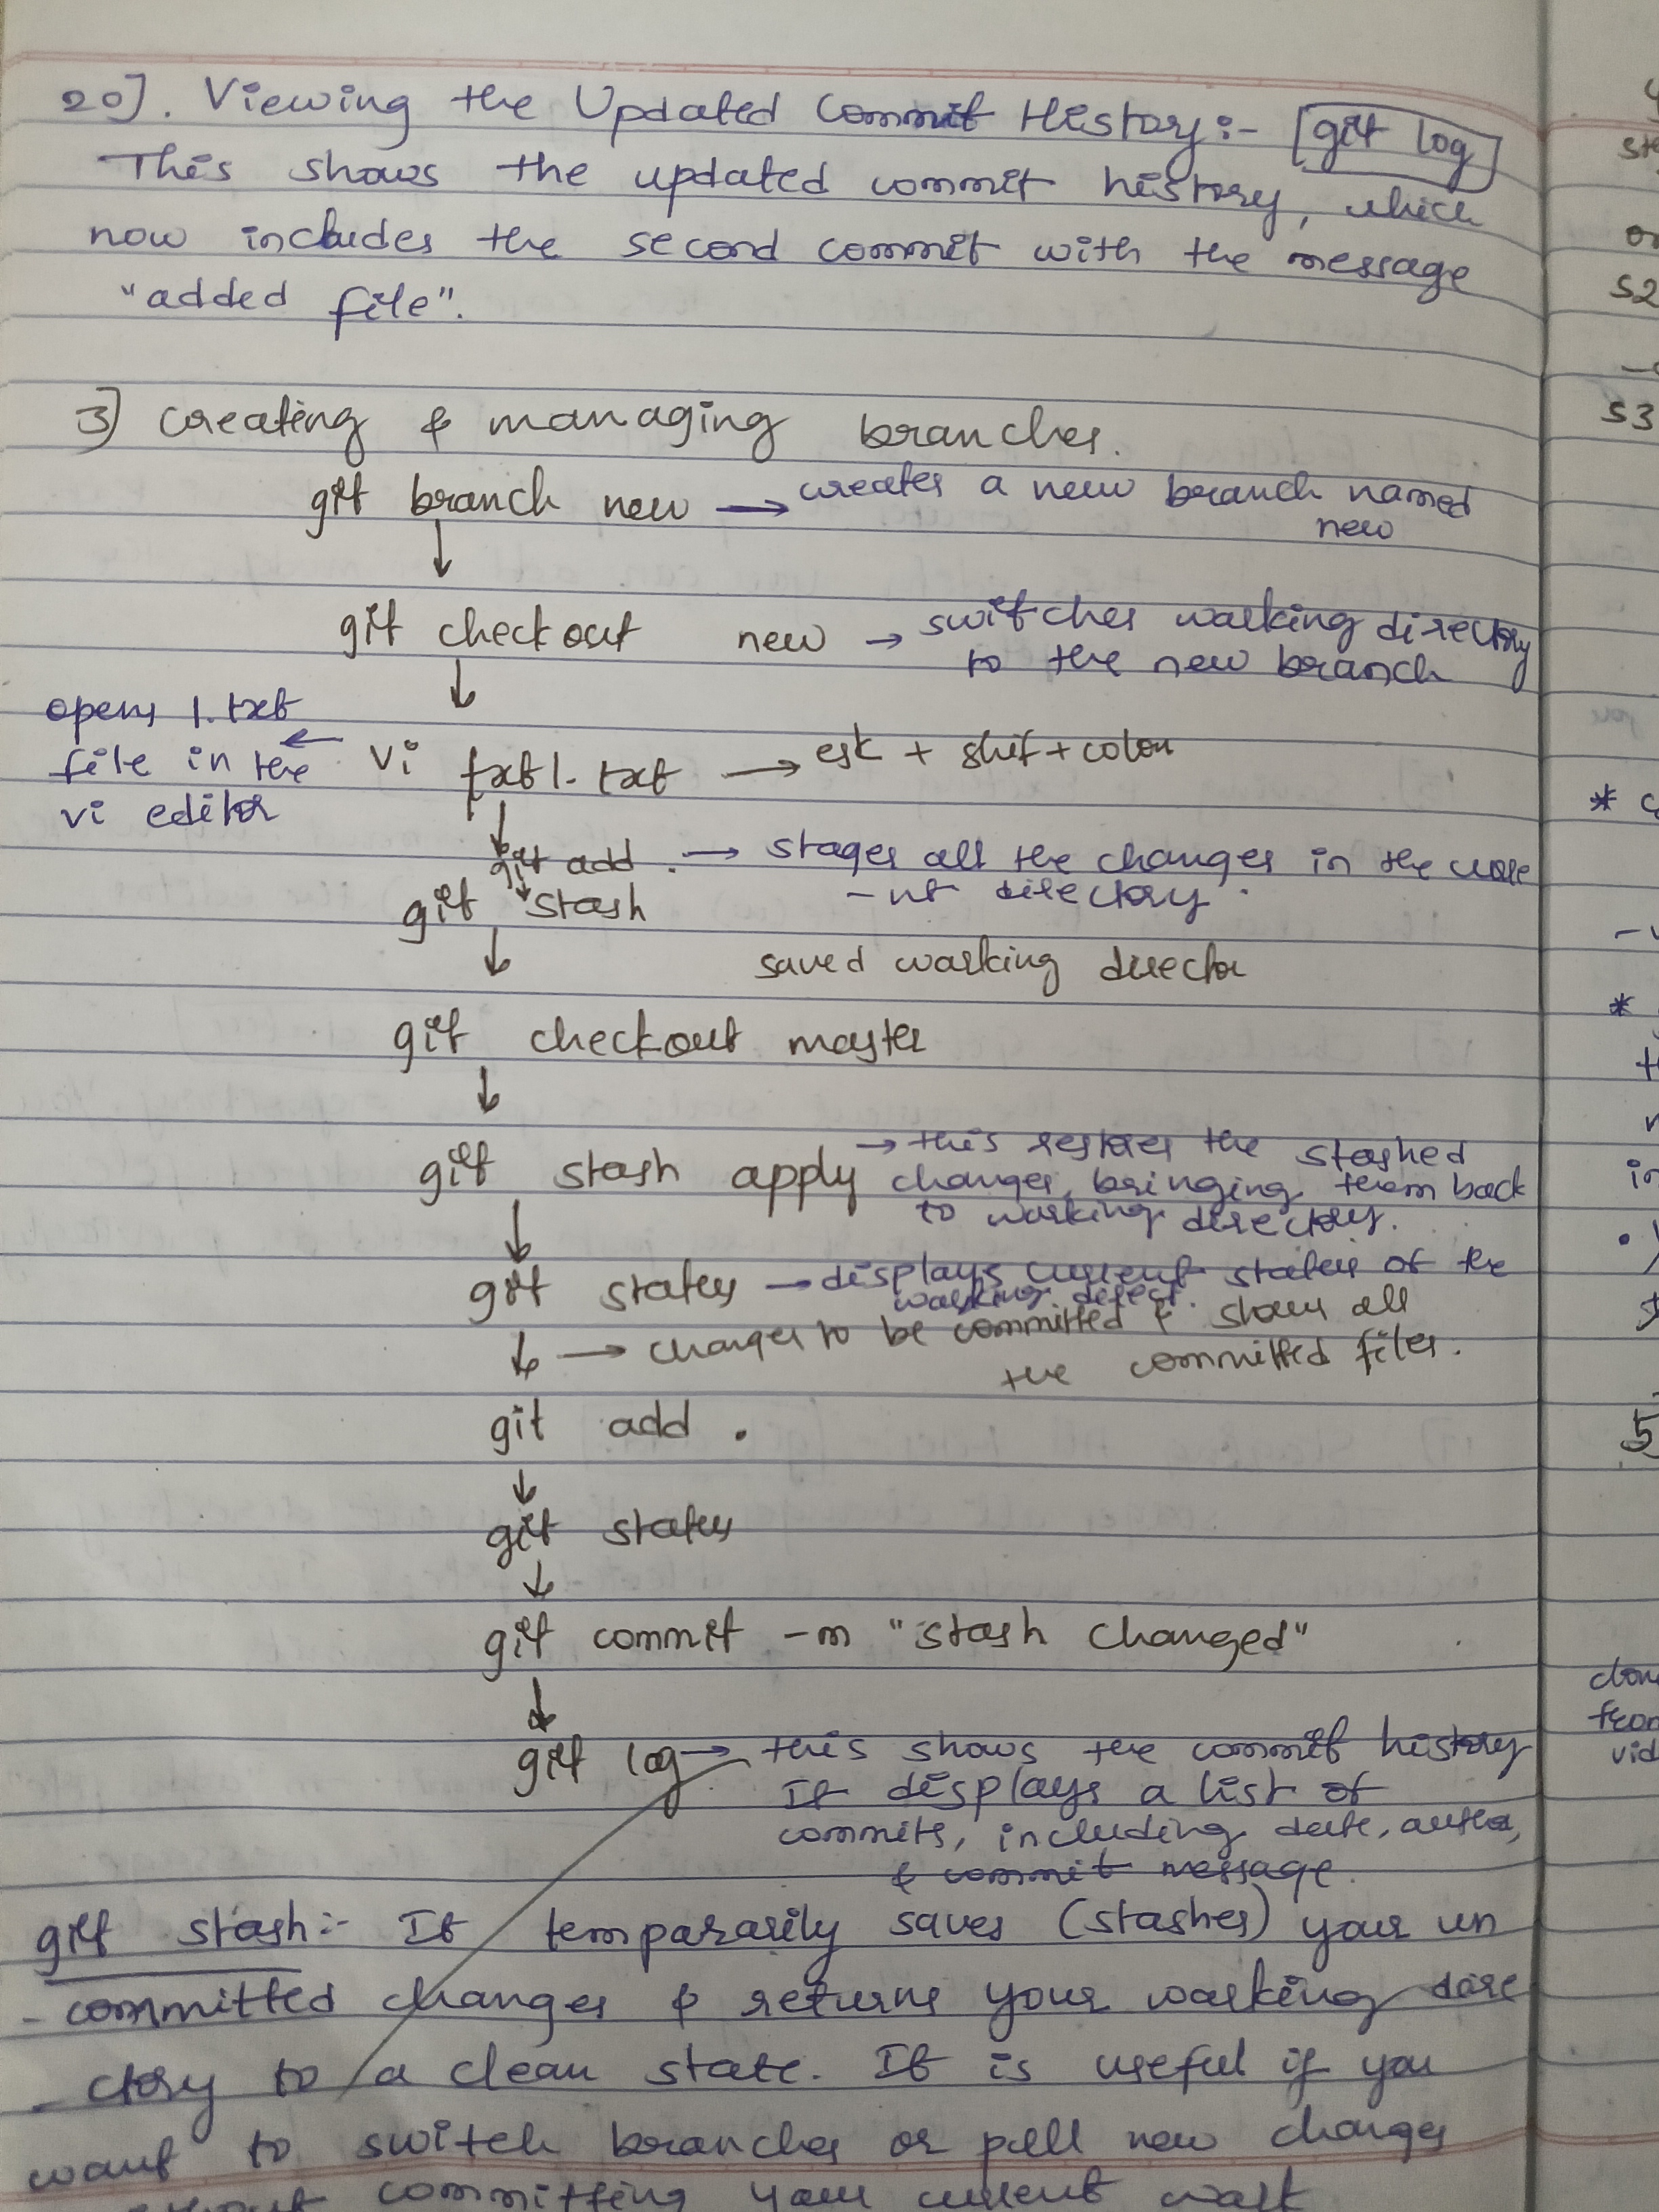 20]. Viewing the Updated Commit History:- [git log]
This shows the updated commit history, which
now includes the second commit with the message
"added file".
3] creating & managing branches.
git branch new → creates a new branch named
new
↓
git checkout new → switches working directory
to the new branch
↓
opens 1.txt
file in the ← vi txt1.txt → esk + shif + colon
vi editor
↓
git add . → stages all the changes in the curre
-nt directory.
↓
git stash
↓
saved working director
git checkout master
↓
git stash apply → this restores the stashed
changes, bringing them back
to working directory.
↓
git status → displays current status of the
working direct.
↓ → changes to be committed & shows all
the committed files.
git add .
↓
git status
↓
git commit -m "stash changed"
↓
git log → this shows the commit history
It displays a list of
commits, including date, author,
& commit message.
git stash:- It temporarily saves (stashes) your un
- committed changes & returns your working dire
- ctory to a clean state. It is useful if you
want to switch branches or pull new changes
committing your current work
S2
S3
5
vid